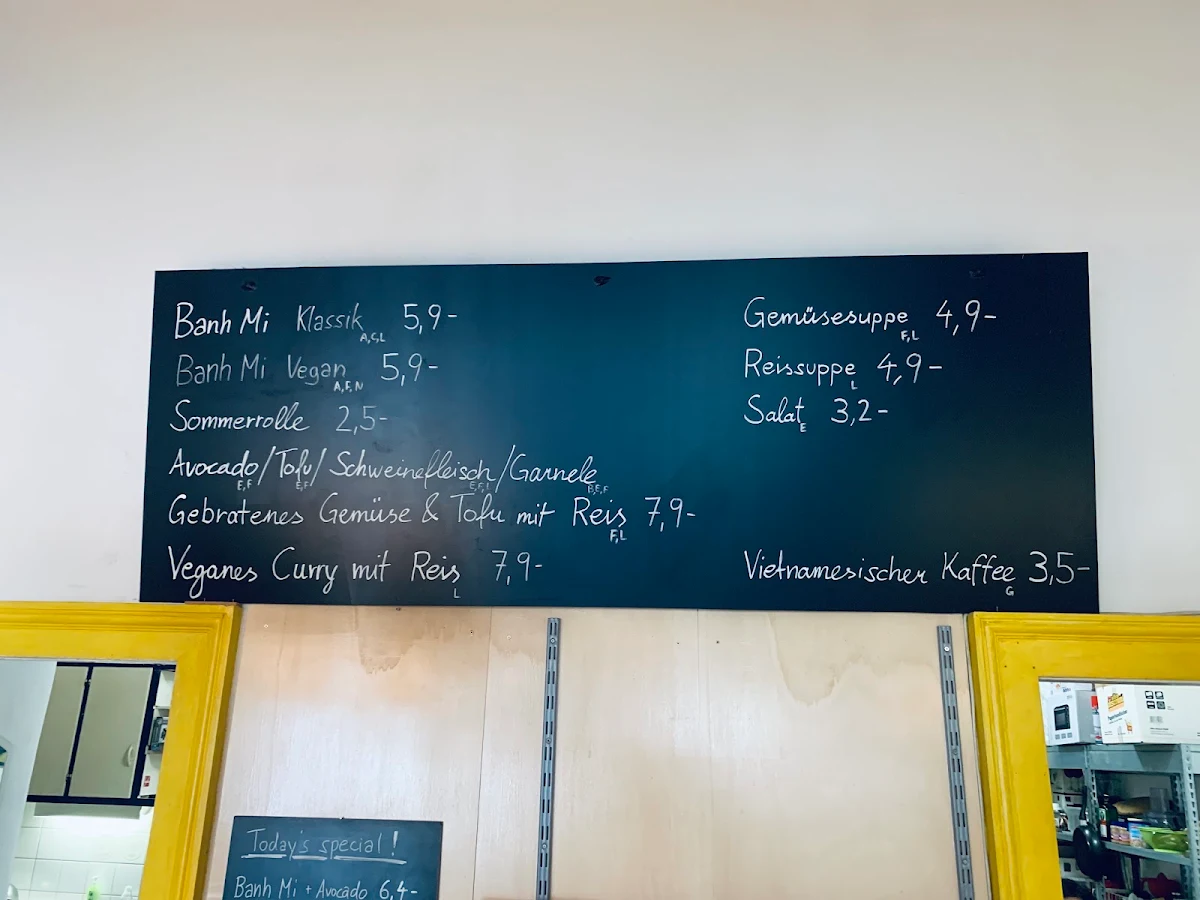 Banh Mi Klassik 5,9-
A,G,L
Banh Mi Vegan 5,9-
A,F,N
Sommerrolle 2,5-
Avocado/Tofu/Schweinefleisch/Garnele
E,F E,F E,F,L B,E,F
Gebratenes Gemüse & Tofu mit Reis 7,9-
F,L
Veganes Curry mit Reis 7,9-
L
Gemüsesuppe 4,9-
F,L
Reissuppe 4,9-
L
Salat 3,2-
E
Vietnamesischer Kaffee 3,5-
G
Today's special!
Banh Mi + Avocado 6,4-